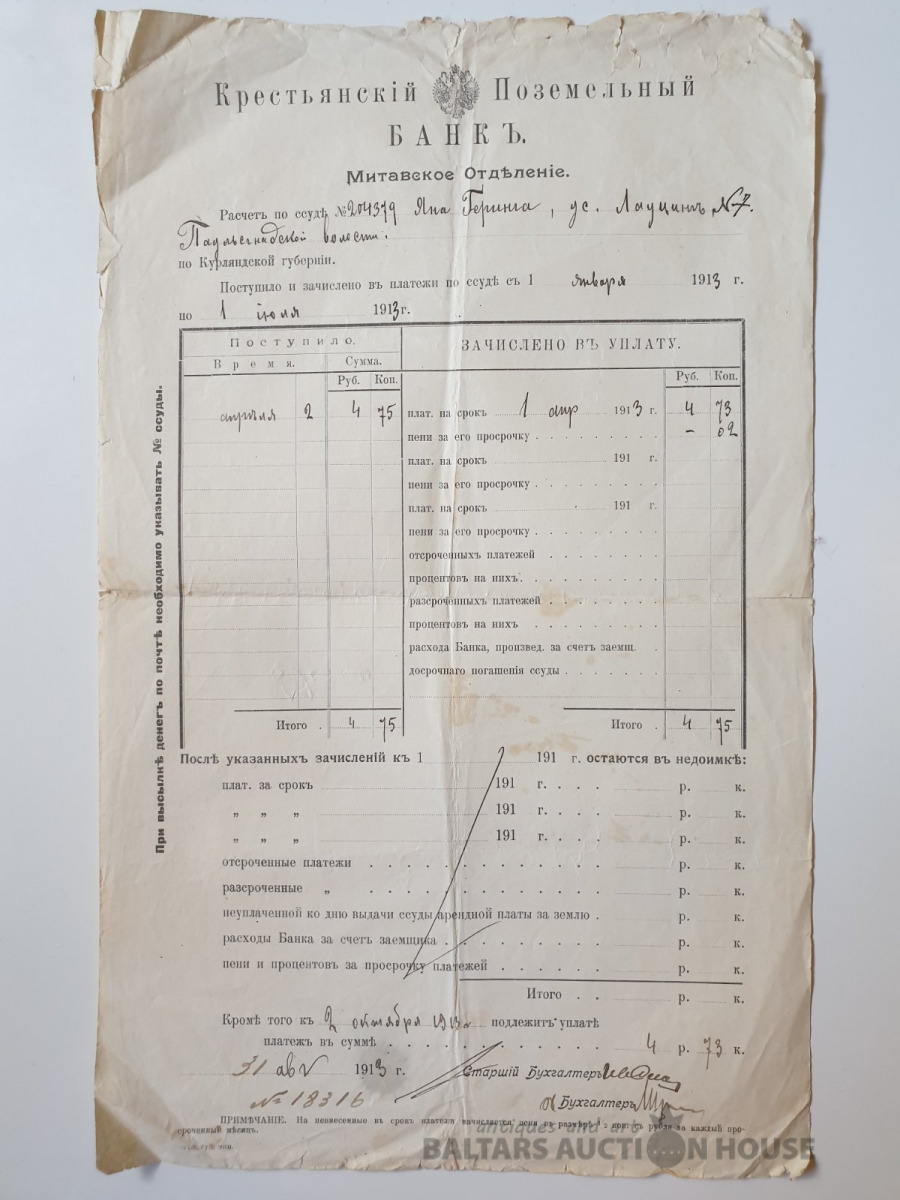 Крестьянскій Поземельный
БАНКЪ.
Митавское Отдѣленіе.
Расчетъ по ссудѣ № 204379 Яна Геринга, ус. Лауцинъ №7.
волости.
по Курляндской губерніи.
Поступило и зачислено въ платежи по ссудѣ съ 1 января 1913 г.
по 1 іюля 1913 г.
Поступило. ЗАЧИСЛЕНО ВЪ УПЛАТУ.
Время. Сумма.
Руб. Коп. Руб. Коп.
апрѣля 2 4 75 плат. на срокъ 1 апр 1913 г. 4 73
пени за его просрочку . . . . . . . . . – 02
плат. на срокъ 191 г.
пени за его просрочку . . . . . . . . .
плат. на срокъ 191 г.
пени за его просрочку . . . . . . . . .
отсроченныхъ платежей . . . . . . . .
процентовъ на нихъ . . . . . . . . . .
разсроченныхъ платежей . . . . . . . .
процентовъ на нихъ . . . . . . . . . .
расхода Банка, произвед. за счетъ заемщ. .
досрочнаго погашенія ссуды . . . . . . .
Итого . 4 75 Итого . 4 75
Послѣ указанныхъ зачисленій къ 1 191 г. остаются въ недоимкѣ:
плат. за срокъ 191 г. . . . р. к.
„ „ „ 191 г. . . . р. к.
„ „ „ 191 г. . . . р. к.
отсроченные платежи . . . . . . . . . . . р. к.
разсроченные „ . . . . . . . . . . . р. к.
неуплаченной ко дню выдачи ссуды арендной платы за землю . р. к.
расходы Банка за счетъ заемщика . . . . . . . . р. к.
пени и процентовъ за просрочку платежей . . . . . . р. к.
Итого . . р. к.
Кромѣ того къ 2 октября 1913 подлежитъ уплатѣ
платежъ въ суммѣ . . . . . . . . . . . . 4 р. 73 к.
31 авг 1913 г. Старшій Бухгалтеръ
№ 18316 Бухгалтеръ
ПРИМѢЧАНІЕ. На невнесенные въ срокъ платежи начисляется пеня въ размѣрѣ ½ коп. съ рубля за каждый про-
сроченный мѣсяцъ.
При высылкѣ денегъ по почтѣ необходимо указывать № ссуды.
antiques and art
BALTARS AUCTION HOUSE